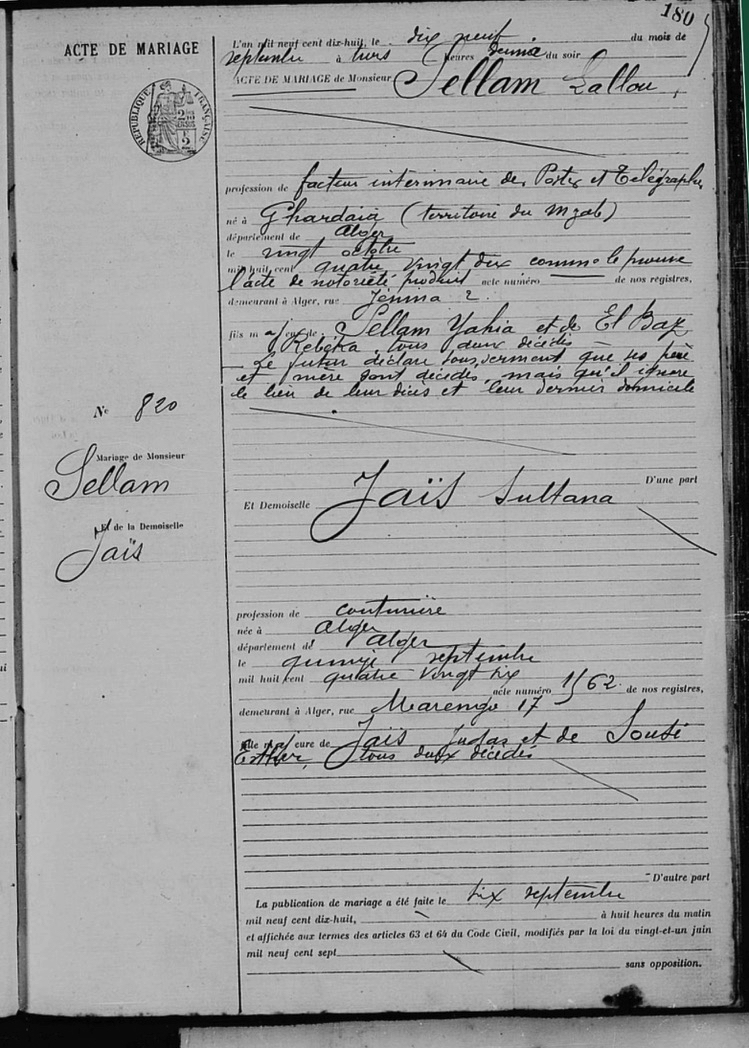 180
ACTE DE MARIAGE
L'an mil neuf cent dix-huit, le dix neuf du mois de
septembre à trois heures demie du soir
ACTE DE MARIAGE de Monsieur Sellam Lallou,
RÉPUBLIQUE FRANÇAISE
profession de facteur intérimaire des Postes et Télégraphes
né à Ghardaia (territoire du Mzab)
département de Alger
le vingt octobre
mil huit cent quatre vingt dix comme le prouve
l'acte de notoriété produit acte numéro de nos registres,
demeurant à Alger, rue Jénina 2
fils majeur de Sellam Yahia et de El Baz
Rebecka, tous deux décédés
Le futur déclare sous serment que ses père
et mère sont décédés, mais qu'il ignore
le lieu de leur décès et leur dernier domicile
N° 820
Mariage de Monsieur
Sellam
Et de la Demoiselle
Jaïs
D'une part
Et Demoiselle Jaïs Sultana
profession de couturière
née à Alger
département de Alger
le quinze septembre
mil huit cent quatre vingt six
acte numéro 1562 de nos registres,
demeurant à Alger, rue Marengo 17
fille majeure de Jaïs Judas et de
Esther, tous deux décédés
D'autre part
La publication de mariage a été faite le six septembre
mil neuf cent dix-huit, à huit heures du matin
et affichée aux termes des articles 63 et 64 du Code Civil, modifiés par la loi du vingt-et-un juin
mil neuf cent sept
sans opposition.